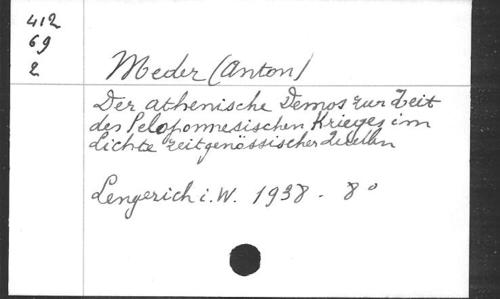 412
69
2
Meder (Anton)
Der athenische Demos zur Zeit
des Peloponnesischen Krieges im
Lichte zeitgenössischer Quellen
Lengerich i. W. 1938 - 8°